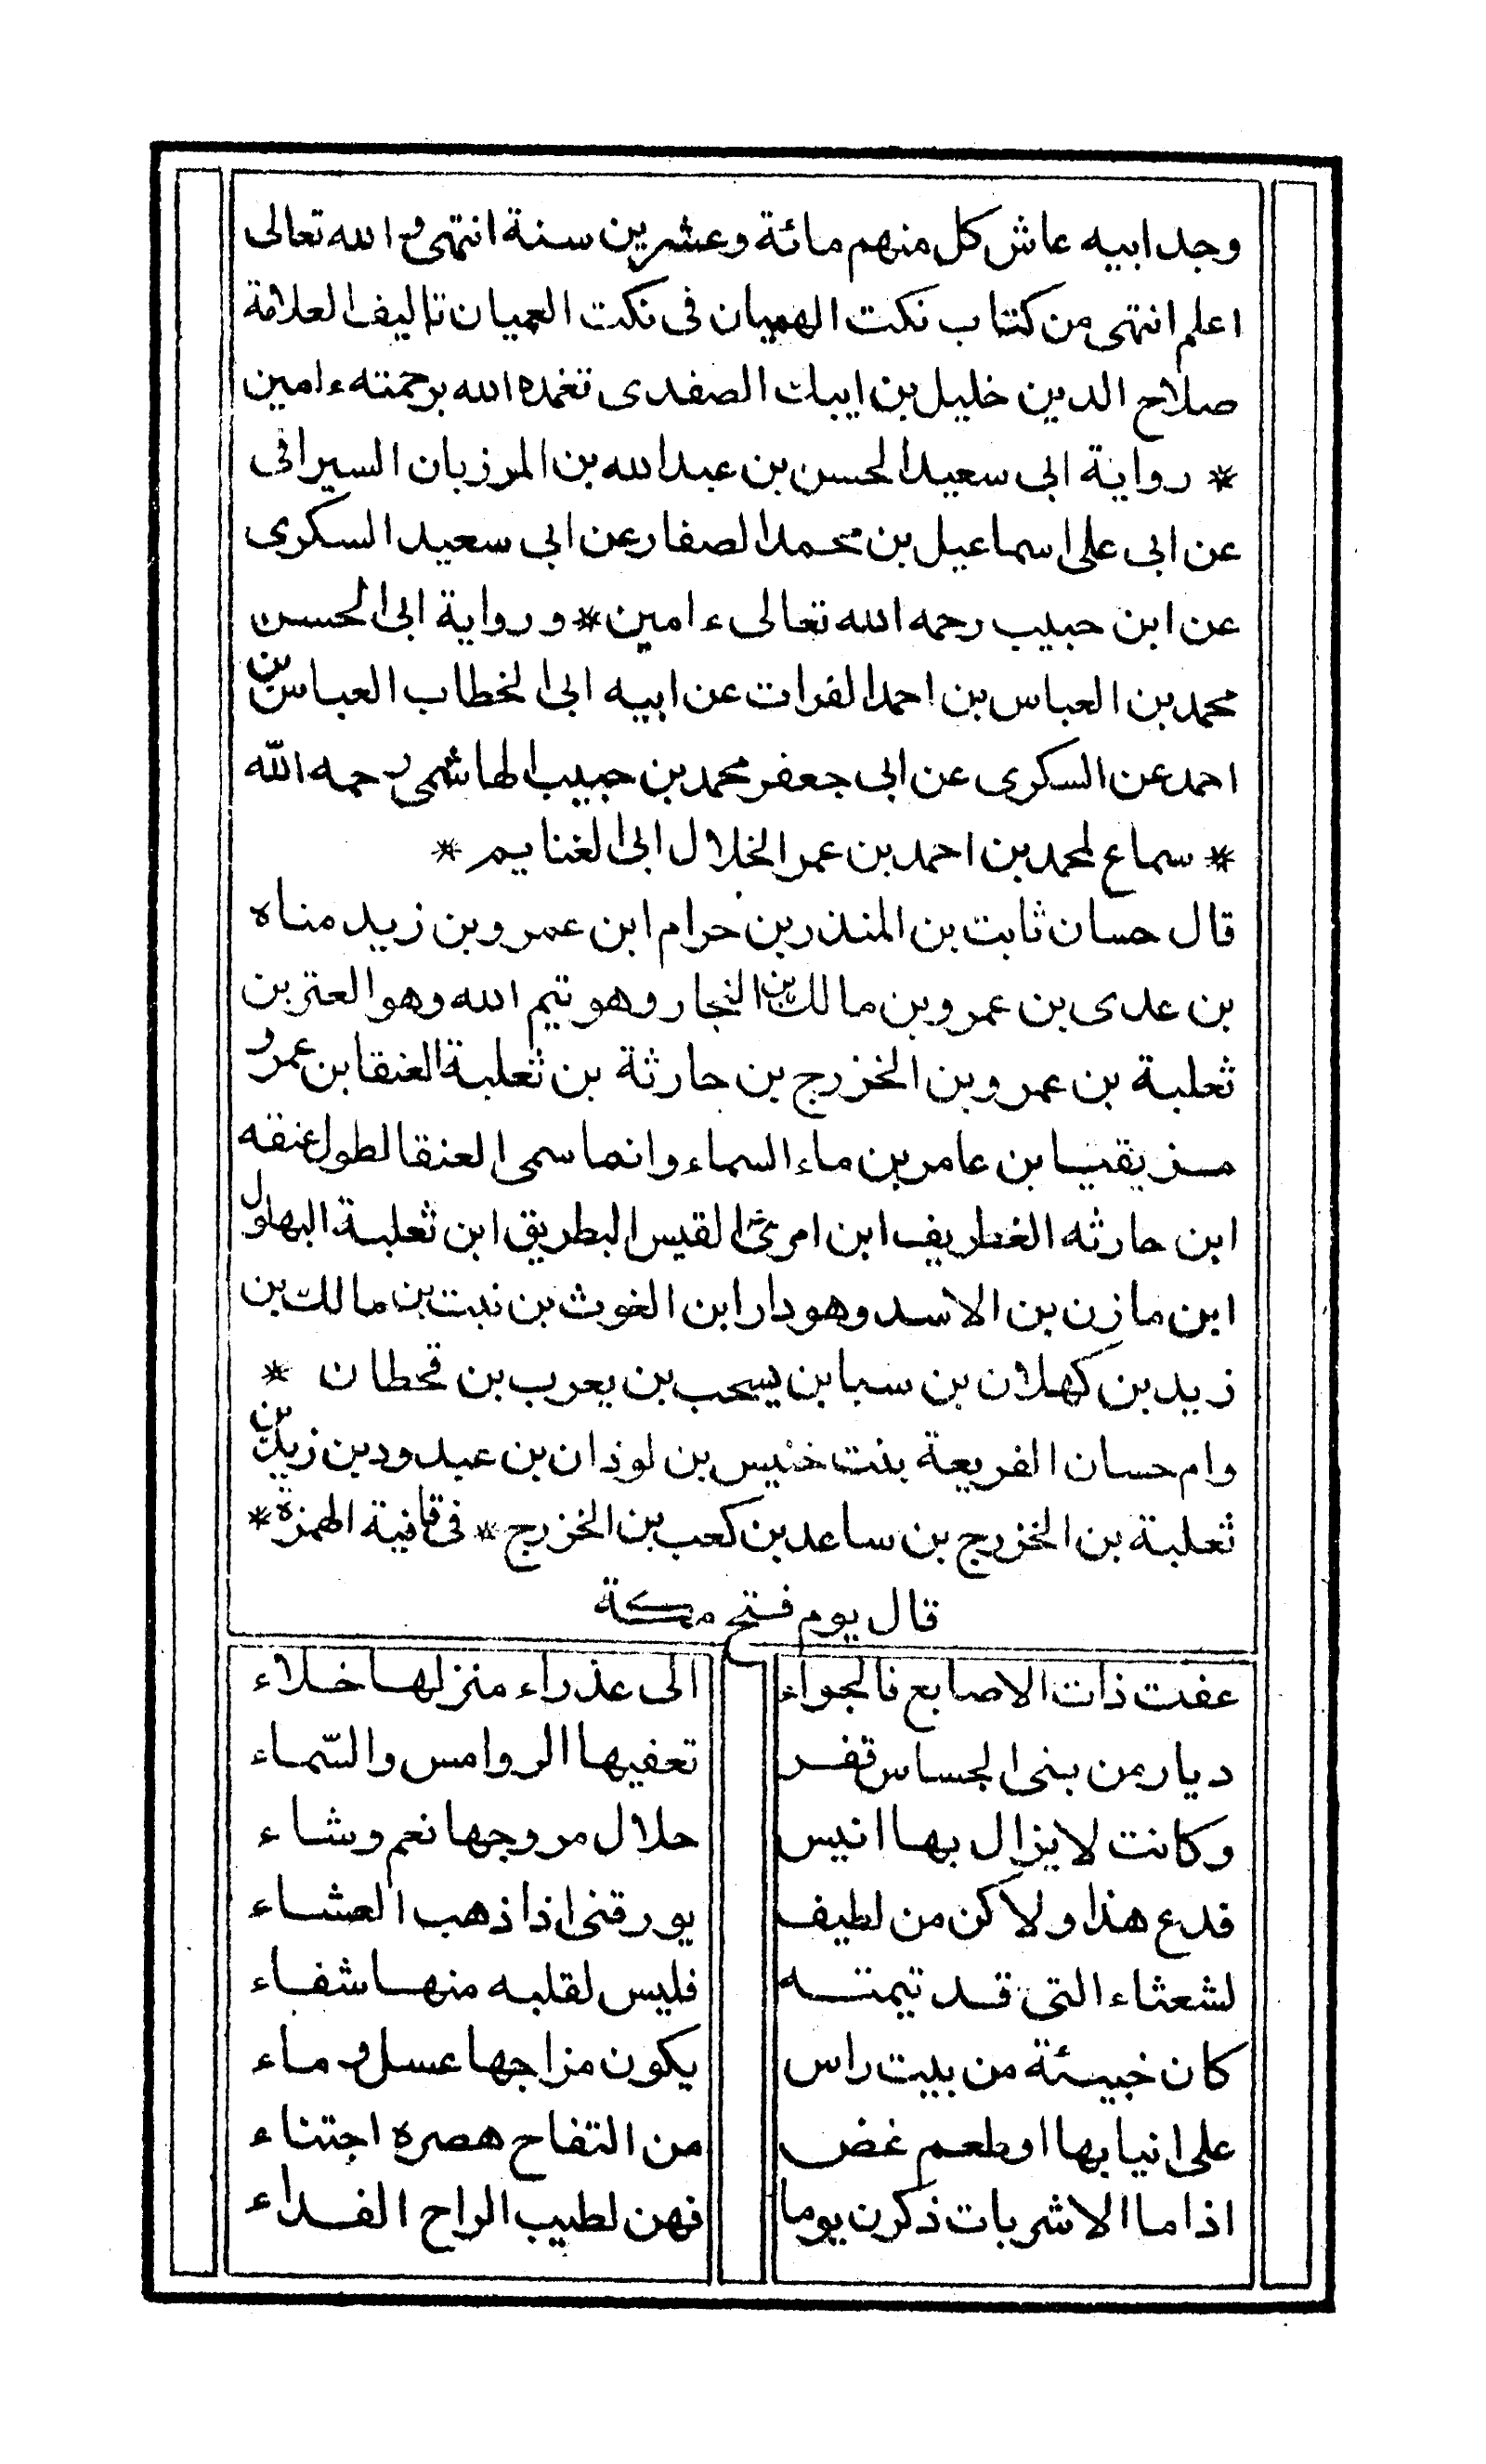 وجد ابيه عاش كل منهم مائة وعشرين سنة انتهى و الله تعالى
اعلم انتهى من كتاب نكت الهميان فى نكت العميان تاليف العلامة
صلاح الدين خليل بن ايبك الصفدى تغمده الله برحمته ءامين
* رواية ابى سعيد الحسن بن عبد الله بن المرزبان السيرافى
عن ابى على اسماعيل بن محمد الصفار عن ابى سعيد السكرى
عن ابن حبيب رحمه الله تعالى ءامين * ورواية ابى الحسن
محمد بن العباس بن احمد الفرات عن ابيه ابى الخطاب العباس بن
احمد عن السكرى عن ابى جعفر محمد بن حبيب الهاشمى رحمه اللّه
* سماع لمحمد بن احمد بن عمر الخلال ابى الغنايم *
قال حسان ثابت بن المنذر بن حرام ابن عمرو بن زيد مناه
بن عدى بن عمرو بن مالك بن النجار وهو تيم الله وهو العتر بن
ثعلبة بن عمرو بن الخزرج بن حارثة بن ثعلبة العنقا بن عمرو
مزيقيا بن عامر بن ماء السماء وانما سمى العنقا لطول عنقه
ابن حارثه الغطريف ابن امرئ القيس البطريق ابن ثعلبة البهلول
ابن مازن بن الاسد وهو دار ابن الغوث بن نبت بن مالك بن
زيد بن كهلان بن سبا بن يسحب بن يعرب بن قحطان *
وام حسان الفريعة بنت خنيس بن لوذان بن عبد ود بن زيد بن
ثعلبة بن الخزرج بن ساعد بن كعب بن الخزرج * فى قافية الهمزة *
قال يوم فتح مكة
عفت ذات الاصابع فالجواء الى عذراء منزلها خلاء
ديار من بنى الجساس قفر تعفيها الروامس والسّماء
وكانت لا يزال بها انيس حلال مروجها نعم وشاء
فدع هذا ولاكن من لطيف يورقنى اذا ذهب العشاء
لشعثاء التى قد تيمته فليس لقلبه منها شفاء
كان خبيئة من بيت راس يكون مزاجها عسل و ماء
على انيابها او طعم غض من التفاح هصره اجتناء
اذا ما الاشربات ذكرن يوما فهن لطيب الراح الفداء